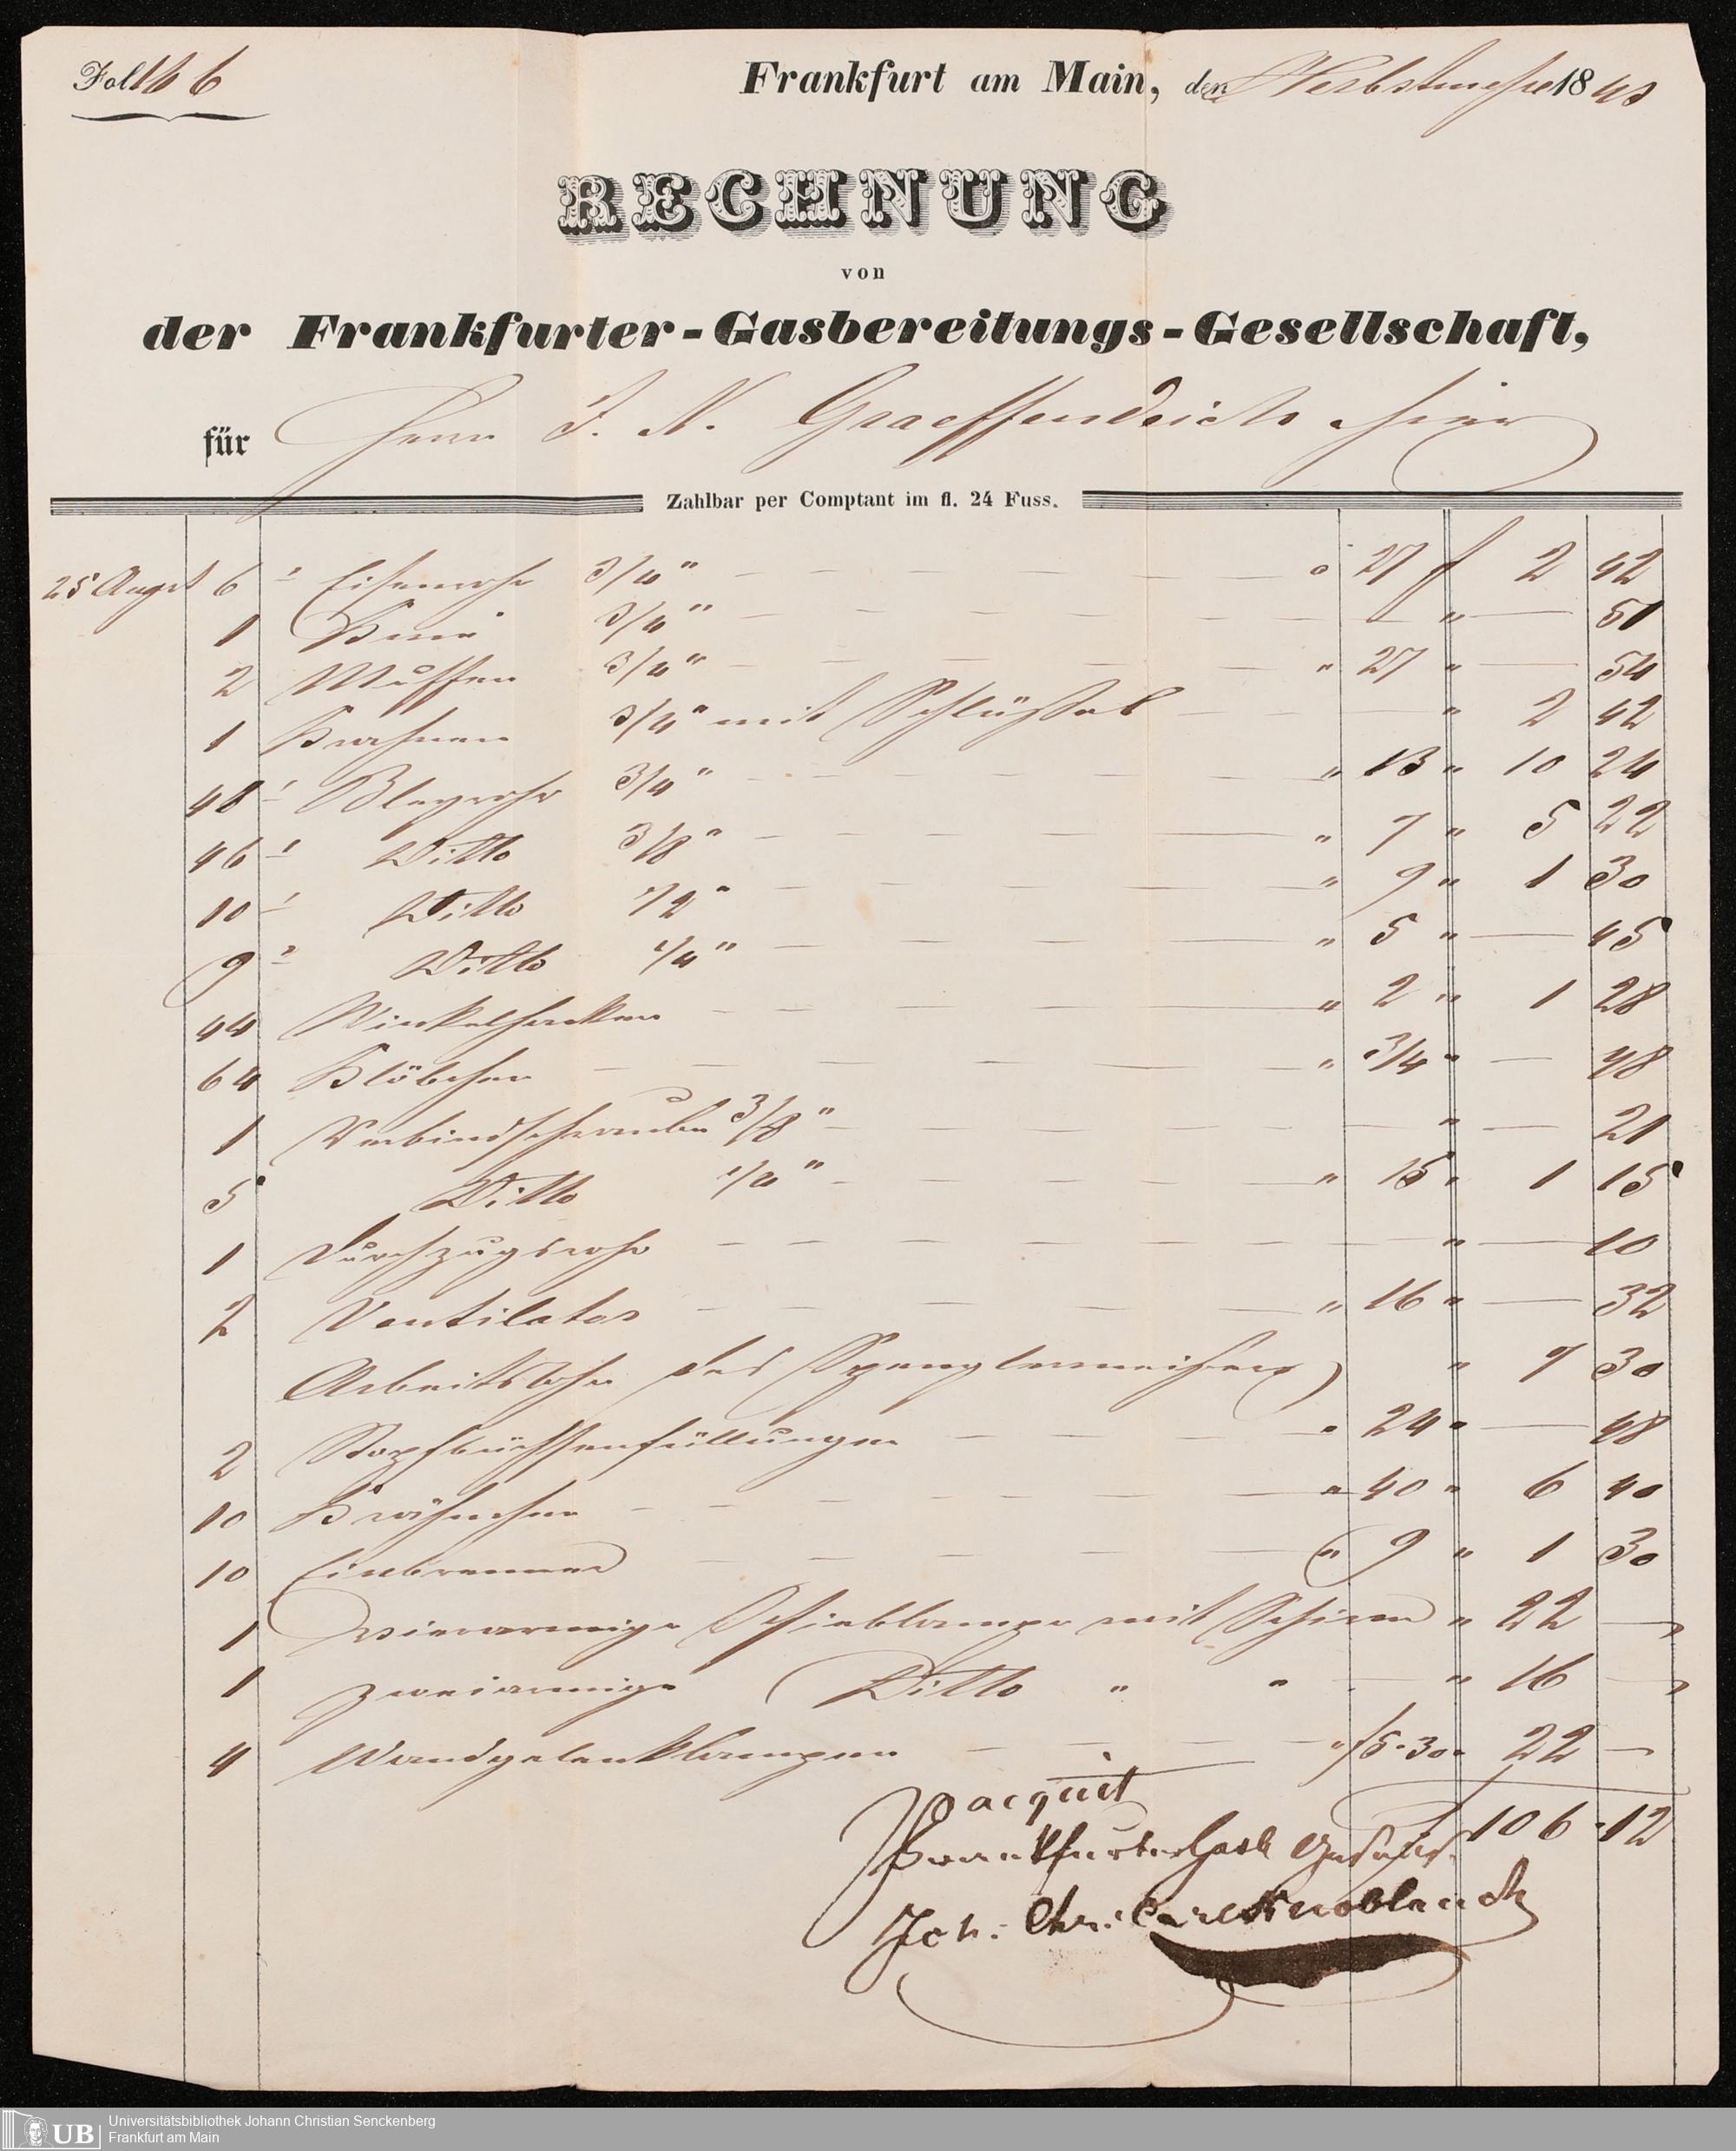 Fol 146
Frankfurt am Main, den Herbstmesse 1840
RECHNUNG
von
der Frankfurter-Gasbereitungs-Gesellschaft,
für Herrn J. N. Graeffendeich hier
Zahlbar per Comptant im fl. 24 Fuss.
25 August 6 ' Eisenrohr 3/4" — a 27 f 2 42
1 Knie 3/4" — " — 51
2 Muffen 3/4" — " 27 " — 54
1 Krahnen 3/4" mit Schlüssel — " 2 42
48 ' Bleyrohr 3/4" — " 13 " 10 24
46 ' Ditto 3/8" — " 7 " 5 22
10 ' Ditto 1/2" — " 9 " 1 30
9 ' Ditto 1/4" — " 5 " — 45
44 Winkelhacken — " 2 " 1 28
64 Klöbchen — " 3/4 " — 48
1 Verbindschraube 3/8" — " — 21
5 Ditto 1/4" — " 15 " 1 15
1 Durchzugsrohr — " — 10
2 Ventilator — " 16 " — 32
Arbeitslohn des Spenglermeisters " 7 30
2 Stopfbüchsenfüllungen — " 24 " — 48
10 Krähnchen — " 40 " 6 40
10 Einbrenner — " 9 " 1 30
1 vierarmige Schieblampe mit Schirm " 22 —
1 zweiarmige Ditto " " — " 16 —
4 Wandgelenklampen — " f 5.30 " 22 —
f 106.12
Pr acquit
Frankfurter Gasb Gesellsch.
Joh. Chr. Carl Knoblauch
UB Universitätsbibliothek Johann Christian Senckenberg
Frankfurt am Main